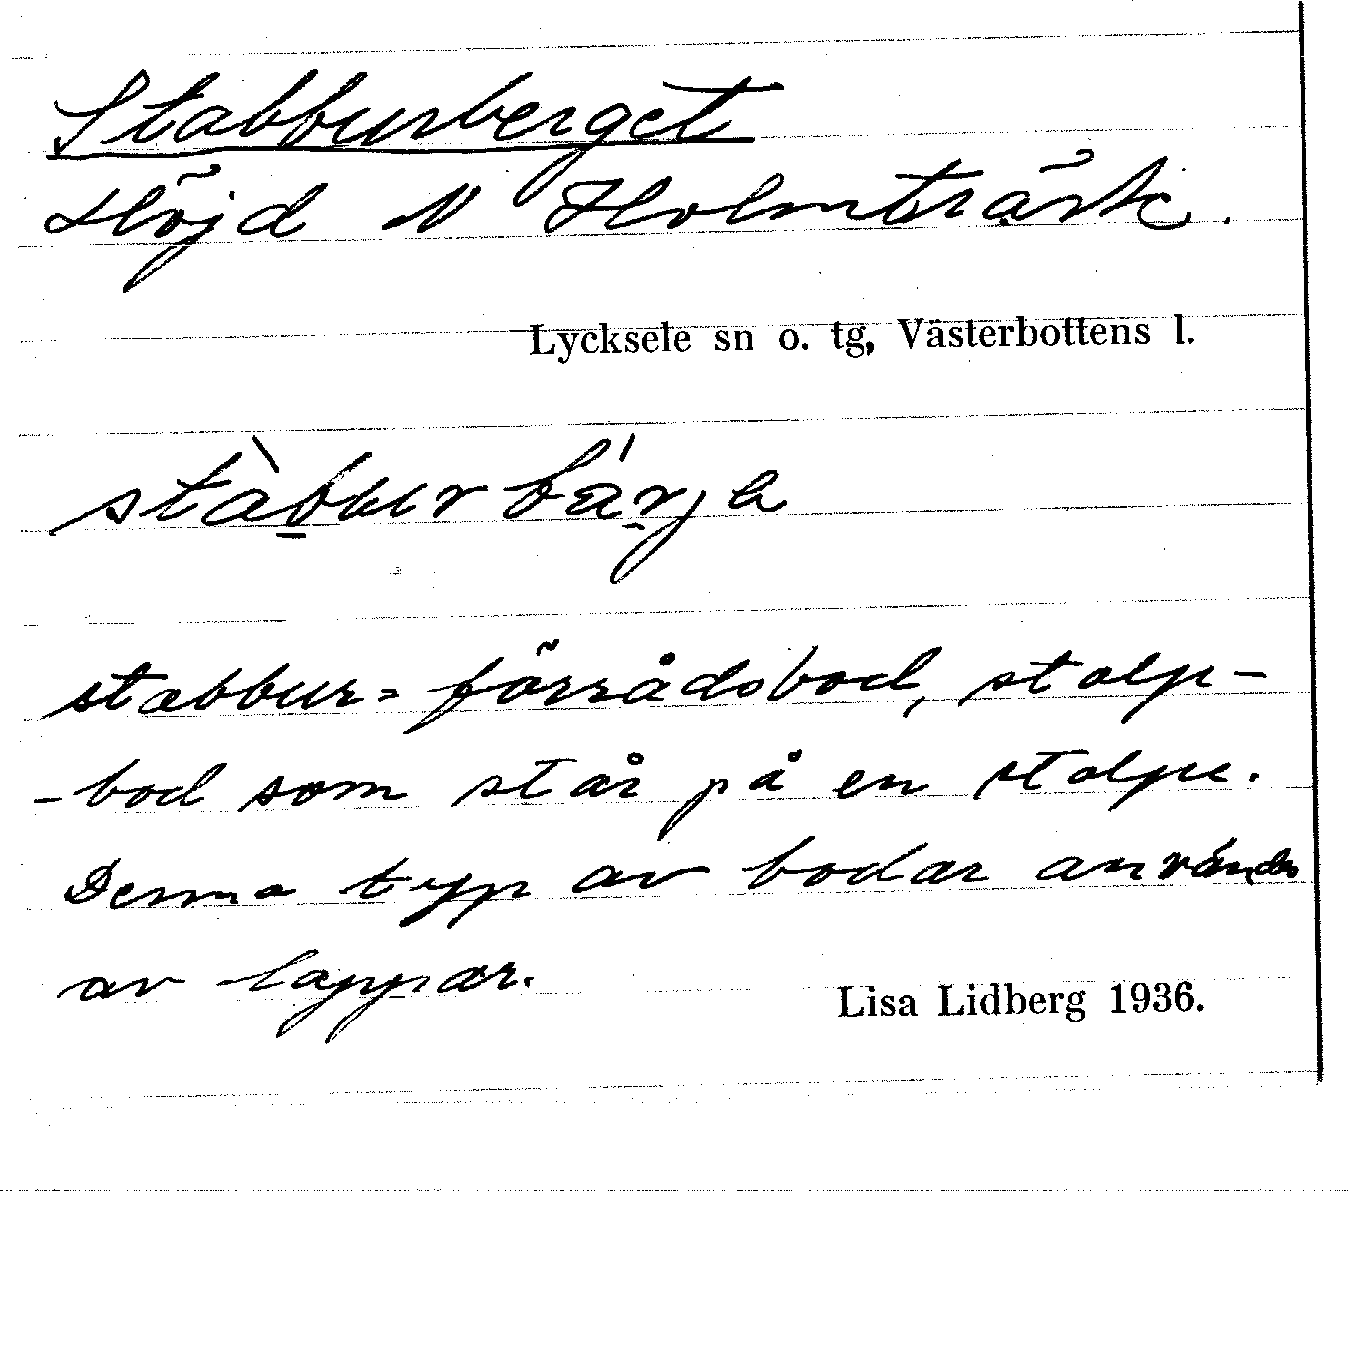 Stabburberget
Höjd N Holmträsk.
Lycksele sn o. tg, Västerbottens l.
stàb̲bur bár̲ja
stabbur = förrådsbod, stolp-
-bod som står på en stolpe.
Denna typ av bodar används
av lappar.
Lisa Lidberg 1936.